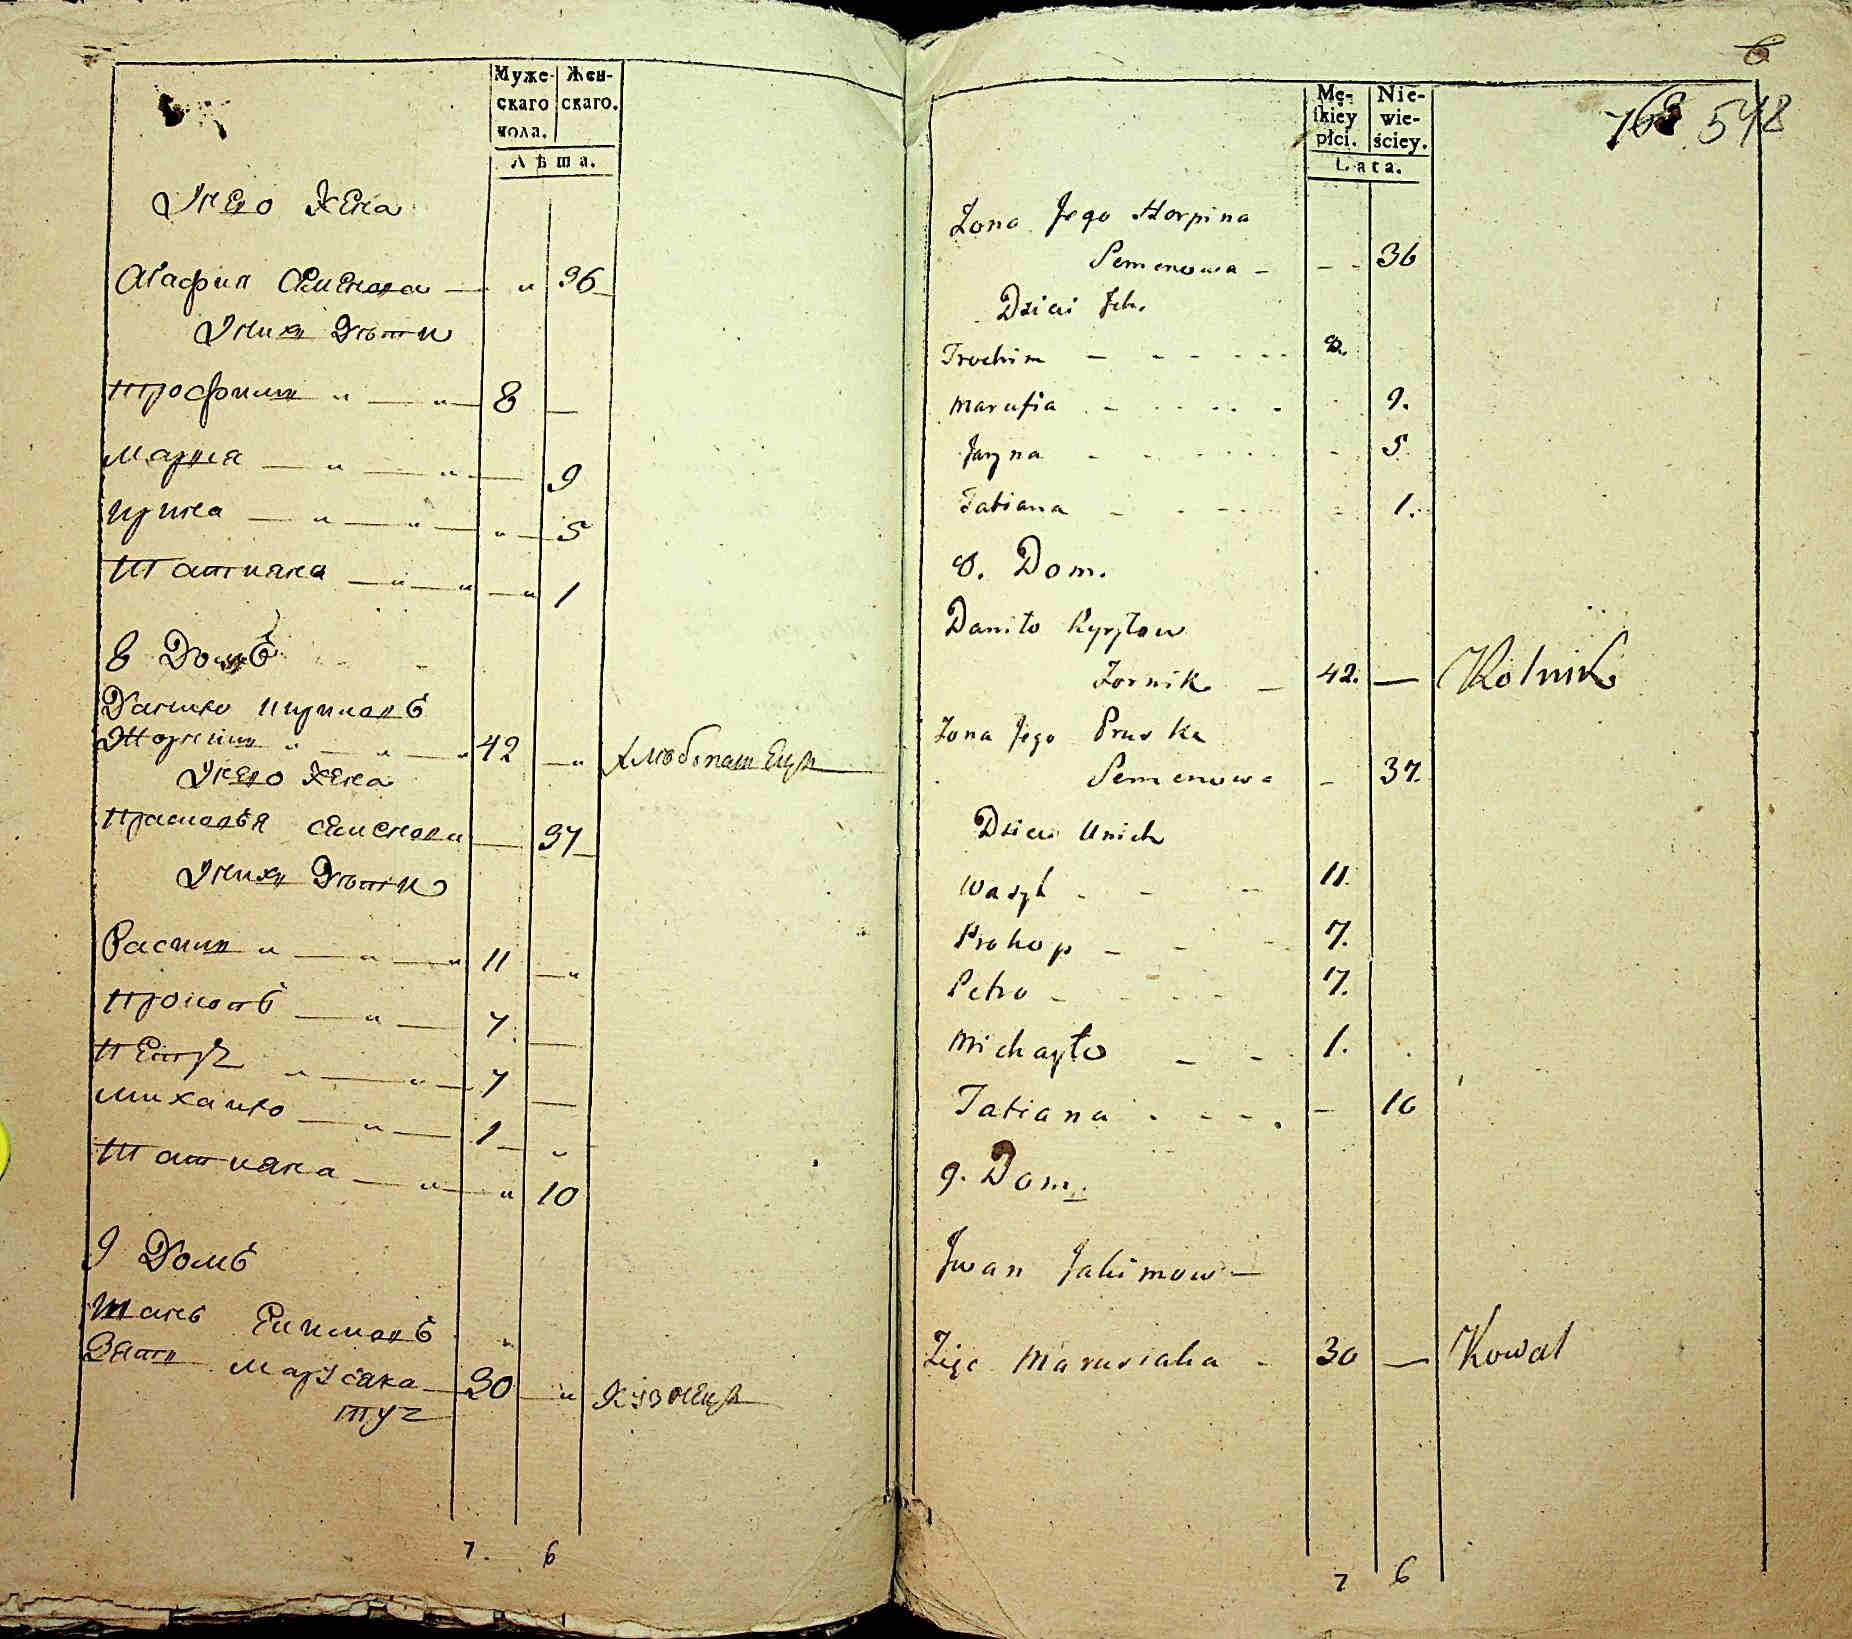 Муже- Жен-
скаго скаго.
пола.
Лѣта.
У него жена
Агафия Семенова — „ 36
У них дѣти
Трофим „ — „ 8 —
Мария — „ — „ — 9
Ирина — „ — „ — „ — 5
Татияна — „ — „ — „ 1
8 Домъ
Данило Кириловъ
Жорник „ — „ — „ 42 — „ Хлѣбопашецъ
У него жена
Прасковья Семенова — 37
У них дѣти
Василий „ — „ — „ 11 — „
Прокопъ — „ — 7 —
Петръ „ — „ — 7 —
Михаило — „ — 1 — „
Татияна — „ — „ 10
9 Домъ
Иванъ Якимовъ „
Зять Марусяка — 30 — „ Кузнецъ
туг
7. 6
6
Mę- Nie-
skiey wie-
płci. ściey.
Lata.
768 548
Żona Jego Horpina
Semenowa - - - 36
Dzieci Ich.
Trochim - - - - - - 8.
Marusia - - - - - - 9.
Jaryna - - - - - - 5
Tatiana - - - - - 1.
8. Dom.
Daniło Kyryłow
Żornik - 42. — Rolnik
Żona Jego Pruska
Semenowa - 37.
Dzieci Unich
Wasyl - - - 11.
Prokop - - - 7.
Petro - - - - 7.
Michayło - - 1.
Tatiana - - - - - 10
9. Dom.
Jwan Jakimow —
Zięć Marusiaka - 30 — Kowal
7 6